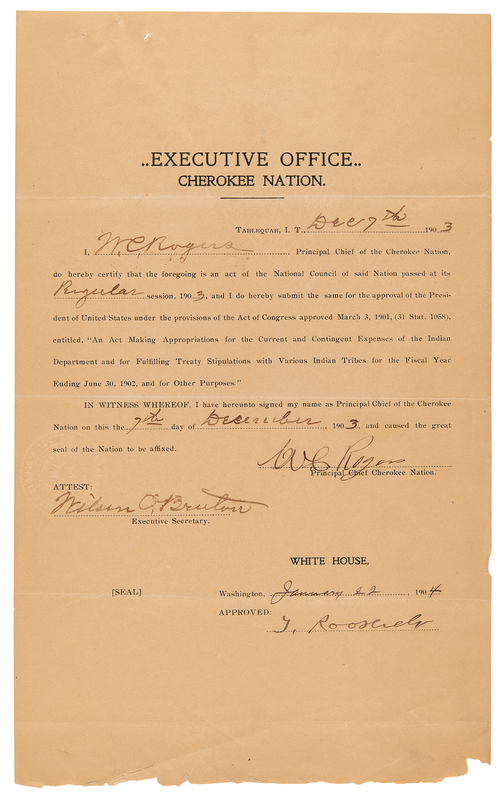 ..EXECUTIVE OFFICE..
CHEROKEE NATION.
TAHLEQUAH, I. T., Dec 7th 1903
I, W.C. Rogers Principal Chief of the Cherokee Nation,
do hereby certify that the foregoing is an act of the National Council of said Nation passed at its
Regular session, 1903, and I do hereby submit the same for the approval of the Presi-
dent of United States under the provisions of the Act of Congress approved March 3, 1901, (31 Stat. 1058),
entitled, "An Act Making Appropriations for the Current and Contingent Expenses of the Indian
Department and for Fulfilling Treaty Stipulations with Various Indian Tribes for the Fiscal Year
Ending June 30, 1902, and for Other Purposes."
IN WITNESS WHEREOF, I have hereunto signed my name as Principal Chief of the Cherokee
Nation on this the 7th day of December, 1903, and caused the great
seal of the Nation to be affixed.
W C Rogers
Principal Chief Cherokee Nation.
ATTEST:
Wilson O. Bruton
Executive Secretary.
WHITE HOUSE,
[SEAL] Washington, January 22, 1904
APPROVED:
T. Roosevelt